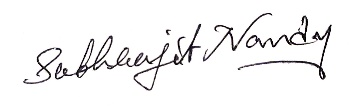 Subhenjit Nandy